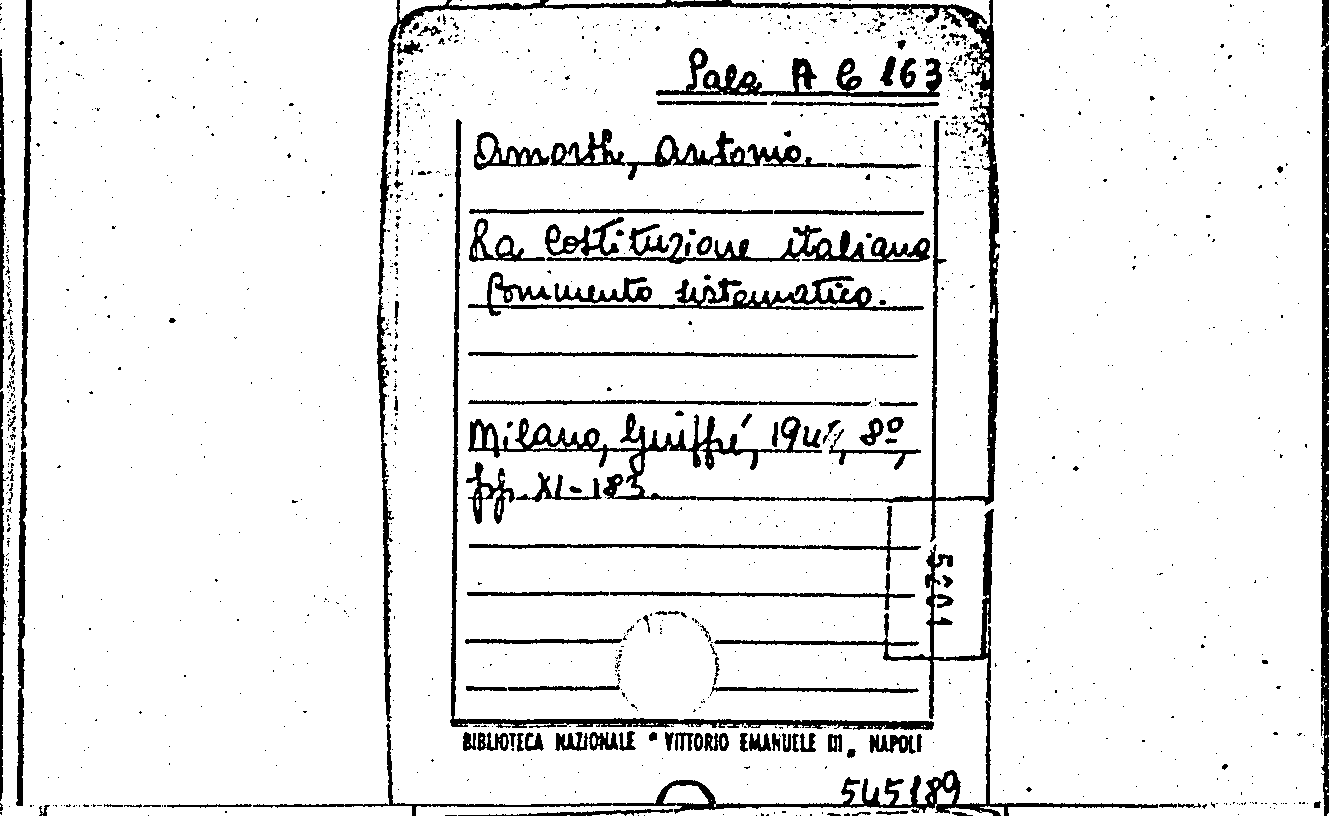 Sala A C 163
Amorth, Antonio.
La Costituzione italiana
Commento sistematico.
Milano, Giuffré, 8º,
pp. XI-183.
5201
BIBLIOTECA NAZIONALE " VITTORIO EMANUELE III „ NAPOLI
545189